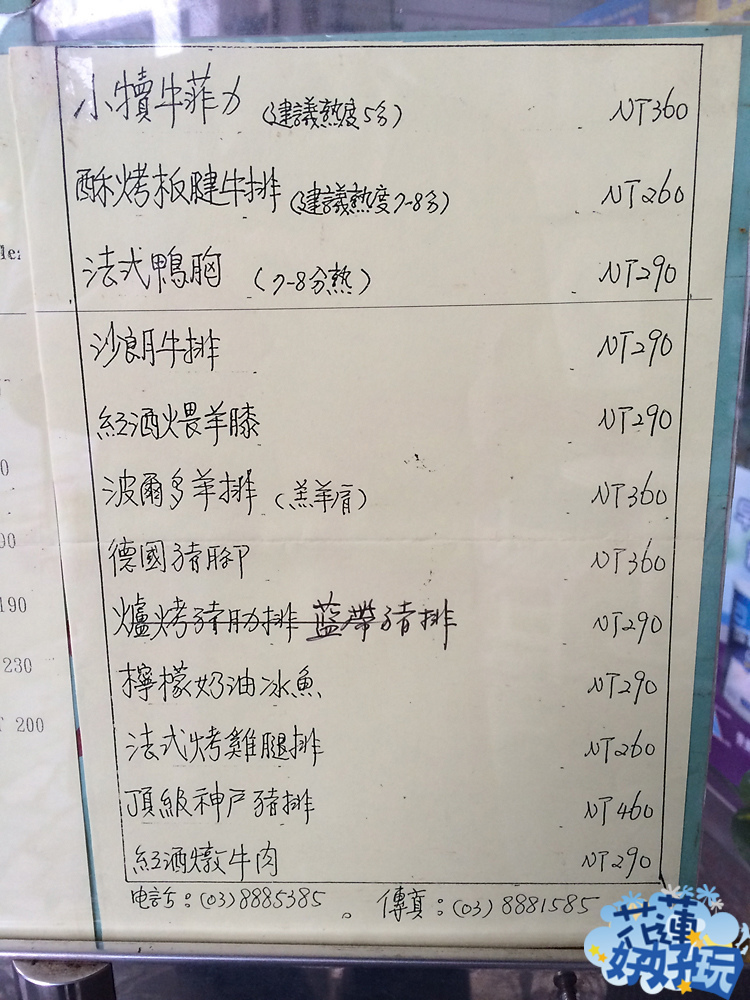 小犢牛菲力 (建議熟度5分) NT360
酥烤板腱牛排 (建議熟度7-8分) NT260
法式鴨胸 (7-8分熟) NT290
沙朗牛排 NT290
紅酒煨羊膝 NT290
波爾多羊排 (羔羊肩) NT360
德國豬腳 NT360
爐烤豬肋排 藍帶豬排 NT290
檸檬奶油冰魚 NT290
法式烤雞腿排 NT260
頂級神戶豬排 NT460
紅酒燉牛肉 NT290
电話:(03)8885385 。 傳真:(03)8881585
190
230
T 200
花蓮
好好玩